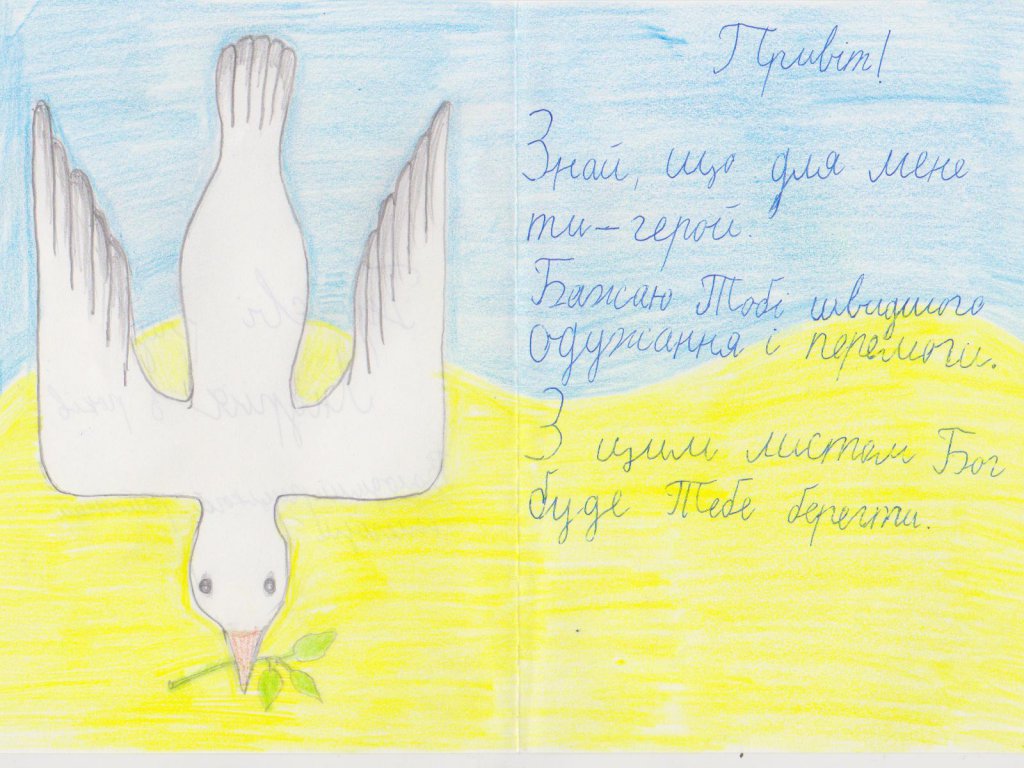 Привіт!
Знай, що для мене
ти – герой.
Бажаю Тобі швидшого
одужання і перемоги.
З цим листом Бог
буде Тебе берегти.